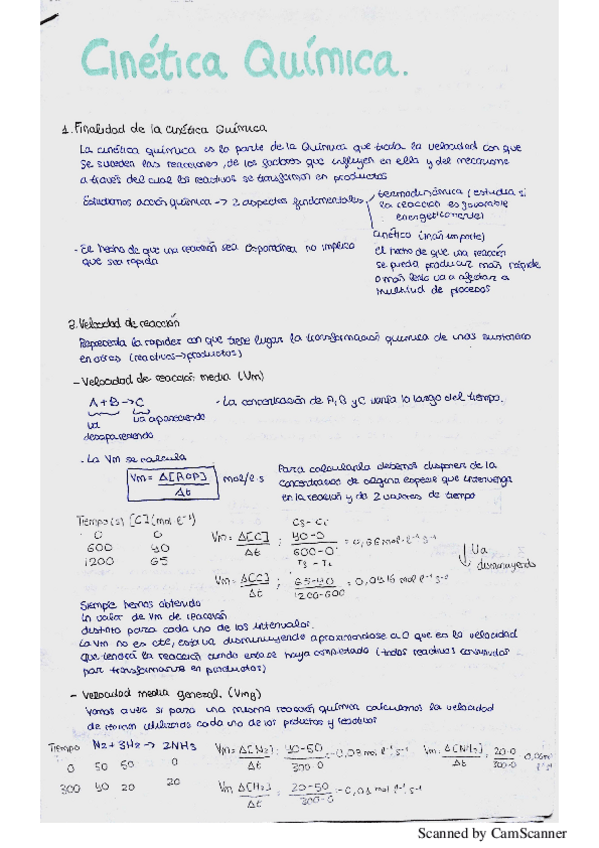 Cinética Química.
1. Finalidad de la cinética Química
La cinética química es la parte de la Química que trata la velocidad con que
se suceden las reacciones, de los factores que influyen en ella y del mecanismo
a través del cual los reactivos se transforman en productos
- Estudiamos acción química -> 2 aspectos fundamentales
termodinámica (estudia si
la reacción es favorable
energéticamente)
cinético (más importe)
El hecho de que una reacción
se pueda producir más rápido
o más lento va a afectar a
multitud de procesos
- El hecho de que una reacción sea espontánea no implica
que sea rápida
2. Velocidad de reacción
Representa la rapidez con que tiene lugar la transformación química de unas sustancias
en otras (reactivos->productos)
- Velocidad de reacción media (Vm)
A + B -> C
va desapareciendo
va apareciendo
- La concentración de A, B y C varía lo largo del tiempo.
- La Vm se calcula
Vm = Δ[RoP] / Δt
mol/l·s
Para calcularla debemos disponer de la
concentración de alguna especie que intervenga
en la reacción y de 2 valores de tiempo
Tiempo (s) [C] (mol l⁻¹)
0 0
600 40
1200 65
Vm = Δ[C] / Δt ; 40-0 / 600-0 = 0,66 mol·l⁻¹ s⁻¹
Vm = Δ[C] / Δt ; 65-40 / 1200-600 = 0,0416 mol l⁻¹ s⁻¹
Va
disminuyendo
Siempre hemos obtenido
un valor de Vm de reacción
distinto para cada uno de los intervalos.
La Vm no es cte, esta va disminuyendo aproximandose a 0 que es la velocidad
que tendrá la reacción cuando esta se haya completado (todos reactivos consumidos
para transformarse en productos)
- Velocidad media general. (Vmg)
Vamos a ver si para una misma reacción química calculamos la velocidad
de utilizando cada uno de los productos y reactivos
Tiempo N₂ + 3H₂ -> 2NH₃
0 50 50 0
300 40 20 20
Vm = Δ[N₂] / Δt ; 40-50 / 300-0 = -0,03 mol l⁻¹ s⁻¹
Vm Δ[H₂] / Δt ; 20-50 / 300-0 = -0,01 mol l⁻¹ s⁻¹
Vm: Δ[NH₃] / Δt ; 20-0 / 300-0
Scanned by CamScanner